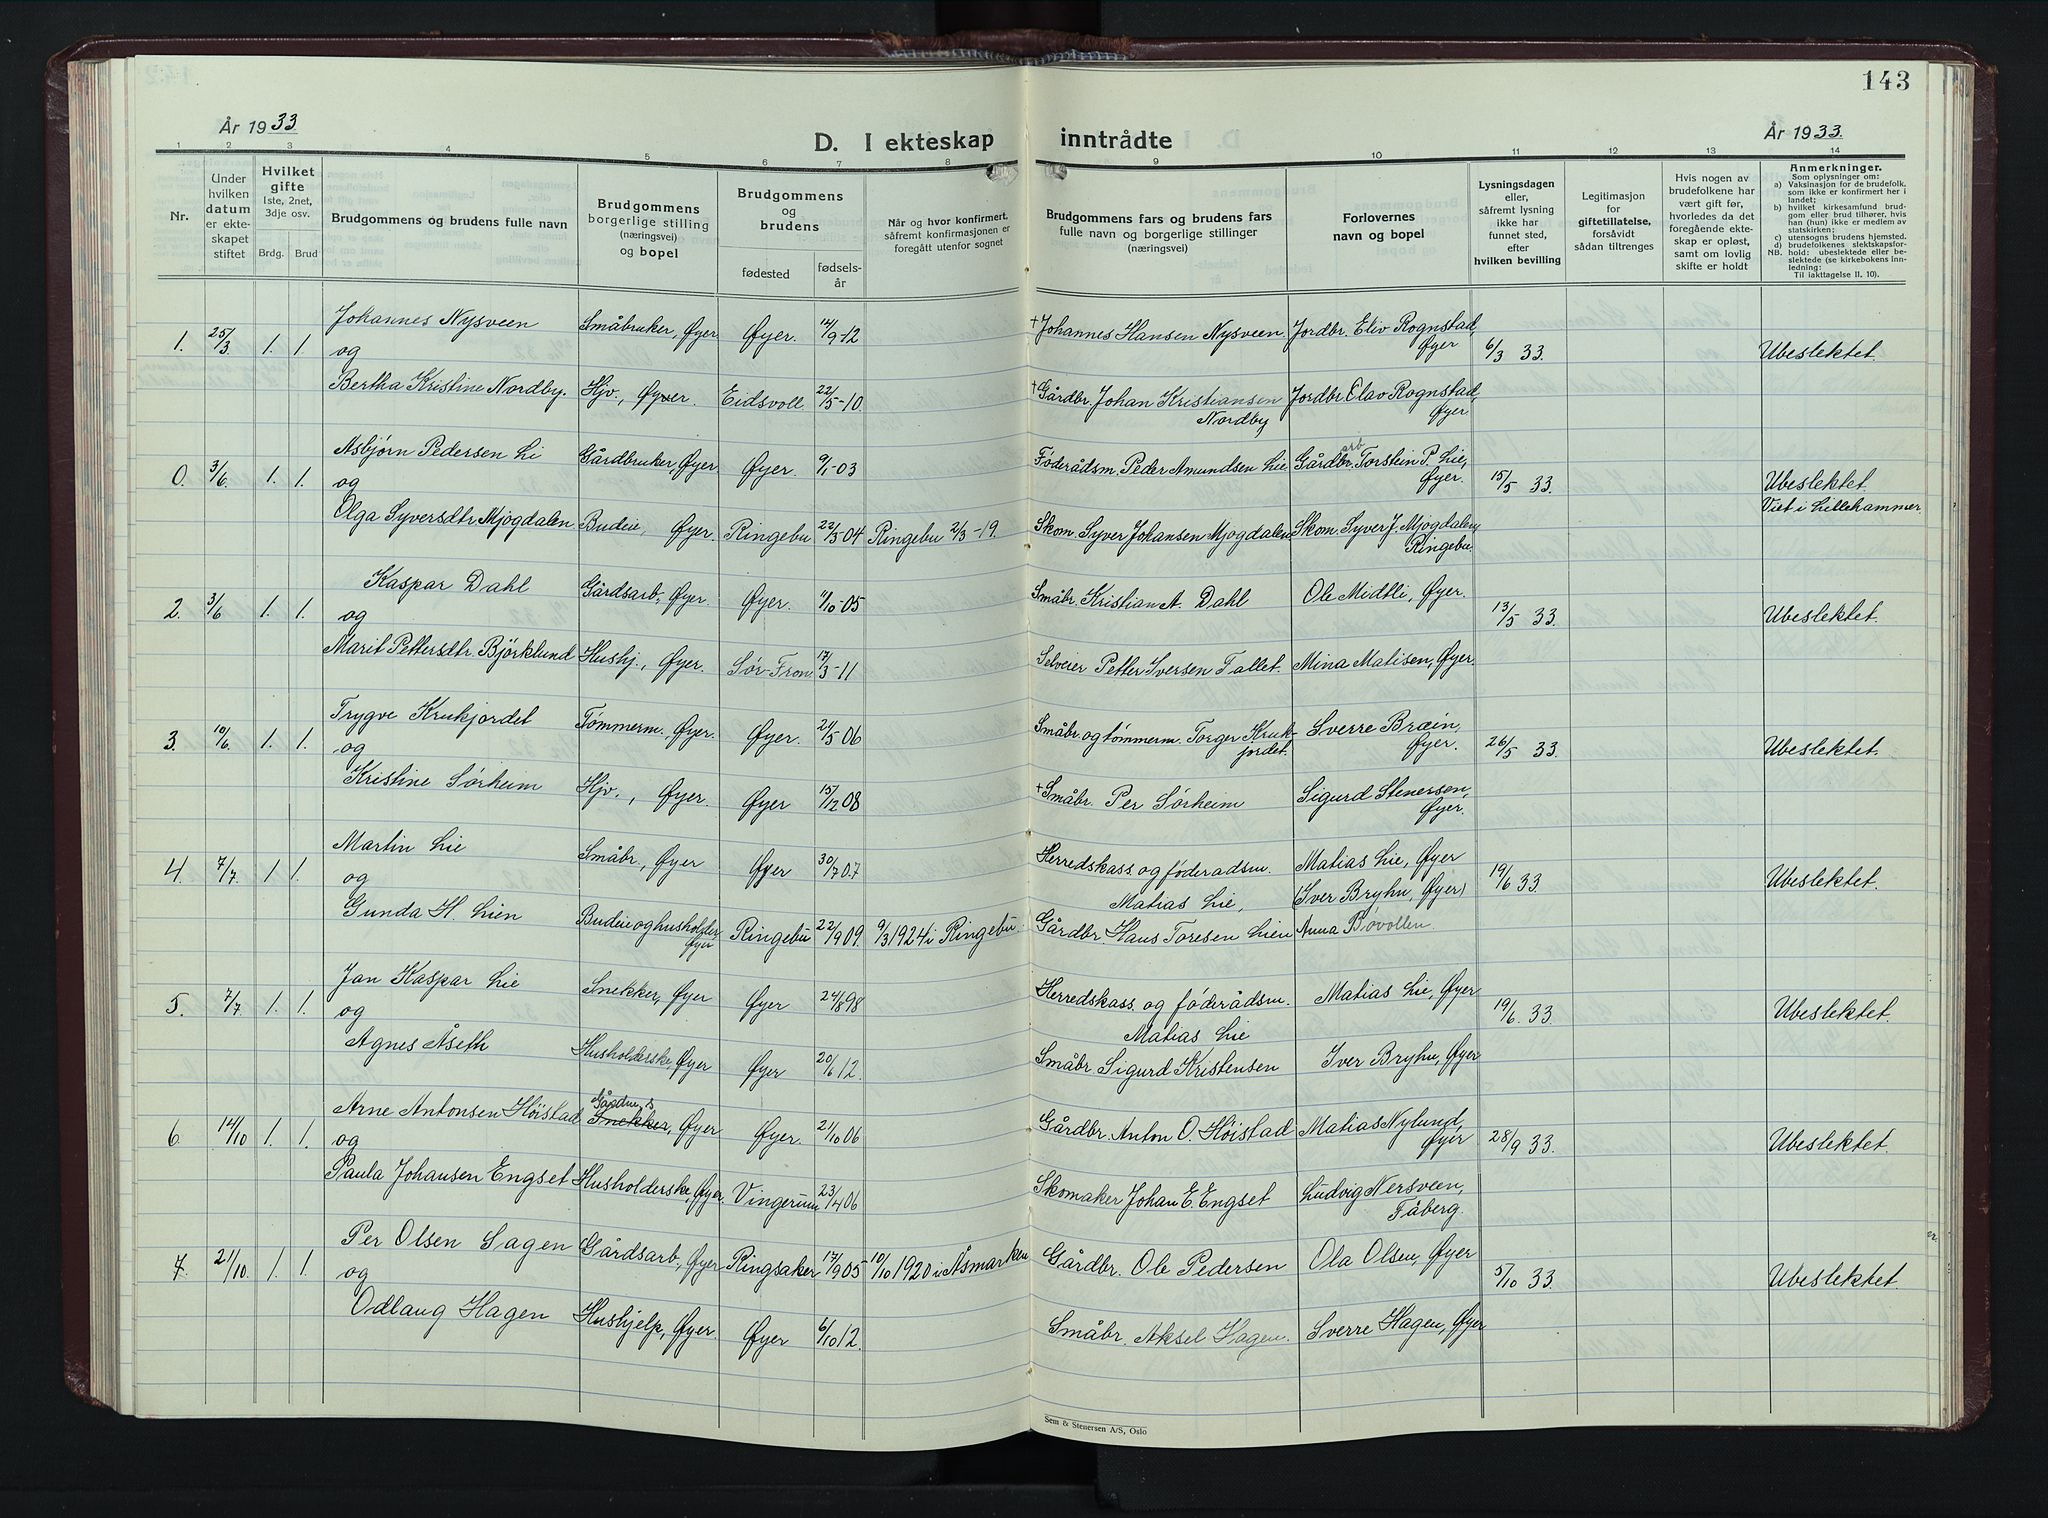 143
År 1933
År 1933.
D. I ekteskap inntrådte
1 2 3 4 5 6 7 8 9 10 11 12 13 14
Nr.
Under hvilken datum er ekteskapet stiftet
Hvilket gifte 1ste, 2net, 3dje osv.
Brdg. Brud
Brudgommens og brudens fulle navn
Brudgommens borgerlige stilling (næringsvei) og bopel
Brudgommens og brudens
fødested
fødselsår
Når og hvor konfirmert, såfremt konfirmasjonen er foregått utenfor sognet
Brudgommens fars og brudens fars fulle navn og borgerlige stillinger (næringsvei)
Forlovernes navn og bopel
Lysningsdagen eller, såfremt lysning ikke har funnet sted, efter hvilken bevilling
Legitimasjon for giftetillatelse, forsåvidt sådan tiltrenges
Hvis nogen av brudefolkene har vært gift før, hvorledes da det foregående ekteskap er opløst, samt om lovlig skifte er holdt
Anmerkninger.
Som oplysninger om:
a) Vaksinasjon for de brudefolk, som ikke er konfirmert her i landet;
b) hvilket kirkesamfund brudgom eller brud tilhører, hvis han (hun) ikke er medlem av statskirken;
c) utensogns brudens hjemsted.
d) brudefolkenes slektskapsforhold: ubeslektede eller beslektede (se kirkebokens innledning:
NB. Til iakttagelse II. 10).
Johannes Nysveen Småbruker, Øyer Øyer. 14/9-12 †Johannes Hansen Nysveen Jordbr. Eliv Rognstad, Øyer
1. 25/3 1. 1. og 6/3 33. Ubeslektet.
Bertha Kristine Nordby. Hjv., Øyer. Eidsvoll 22/5-10 †Gårdbr. Johan Kristiansen Nordby Jordbr. Olav Rognstad, Øyer
Asbjørn Pedersen Li Gårdbruker, Øyer Øyer. 9/1-03 Føderådsm. Peder Amundsen Lie Gårdbr. arb Torstein P. Lie, Øyer.
0. 3/6. 1. 1. og 15/5 33. Ubeslektet.
Viet i Lillehammer.
Olga Syversdtr Mjogdalen Budeie, Øyer. Ringebu 22/3-04 Ringebu 2/3-19. Skom. Syver Johansen Mjogdalen Skom. Syver J. Mjogdalen, Ringebu.
Kaspar Dahl Gårdsarb., Øyer. Øyer. 11/10-05 Småbr. Kristian A. Dahl Ole Midtli, Øyer.
2. 3/6 1. 1. og 13/5 33. Ubeslektet.
Marit Pettersdtr. Björklund Hushj., Øyer. Sør-Fron. 17/3-11 Selveier Petter Iversen Fallet. Mina Matisen, Øyer
Trygve Krukjordet Tømmerm. Øyer. Øyer. 21/5 06 Småbr. og tømmerm. Torger Krukjordet. Sverre Bræin, Øyer.
3. 10/6. 1. 1. og 26/5 33. Ubeslektet.
Kristine Sørheim Hjv., Øyer. Øyer 15/12 08 †Småbr. Per Sørheim Sigurd Stenersen, Øyer.
Martin Lie Småbr., Øyer Øyer 30/7 07 Herredskass. og føderadsm. Matias Lie, Matias Lie, Øyer
4. 7/7. 1 1. og (Iver Bryhn, Øyer) 19/6 33. Ubeslektet.
Gunda H. Lien Budeie og husholder, Øyer Ringebu 22/9 09. 9/3 1924 i Ringebu. Gårdbr. Hans Toresen Lien Anna Bøvollen.
Jan Kaspar Lie Snekker, Øyer Øyer 24/8 98 Herredskass. og føderådsm. Matias Lie Matias Lie, Øyer
5. 7/7. 1. 1. og 19/6. 33. Ubeslektet.
Agnes Åseth Husholderske, Øyer Øyer 20/6 12. Småbr. Sigurd Kristensen Iver Bryhn, Øyer
Arne Antonsen Høistad Gårdm.s Snekker, Øyer Øyer. 21/10 06 Gårdbr. Anton O. Høistad Matias Nylund, Øyer
6. 14/10 1. 1. og 28/9 33. Ubeslektet.
Paula Johansen Engset Husholderske, Øyer Vingerum 23/4 06 Skomaker Johan E. Engset Ludvig Nersveen, Fåberg.
Per Olsen Sagen Gårdsarb., Øyer Ringsaker 17/9 05 10/10 1920 i Åsmarken Gårdbr. Ole Pedersen Ola Olsen, Øyer
7. 21/10. 1. 1. og 5/10 33. Ubeslektet.
Odlaug Hagen Hushjelp, Øyer. Øyer 6/10 12. Småbr. Aksel Hagen. Sverre Hagen, Øyer
Sem & Stenersen A/S, Oslo